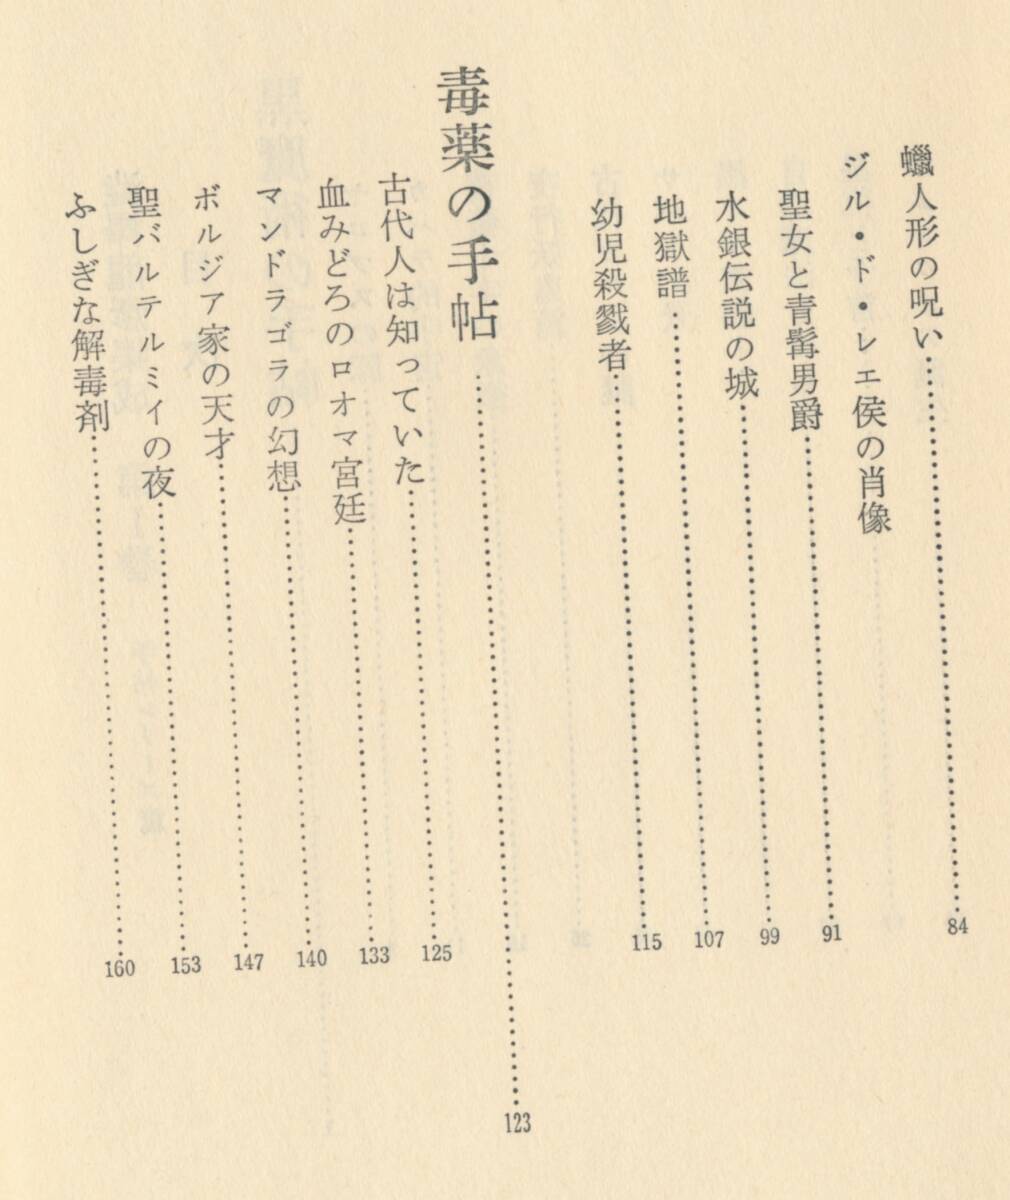 蠟人形の呪い……84
ジル・ド・レエ侯の肖像
聖女と青髯男爵……91
水銀伝説の城……99
地獄譜……107
幼児殺戮者……115
毒薬の手帖……123
古代人は知っていた……125
血みどろのロオマ宮廷……133
マンドラゴラの幻想……140
ボルジア家の天才……147
聖バルテルミイの夜……153
ふしぎな解毒剤……160